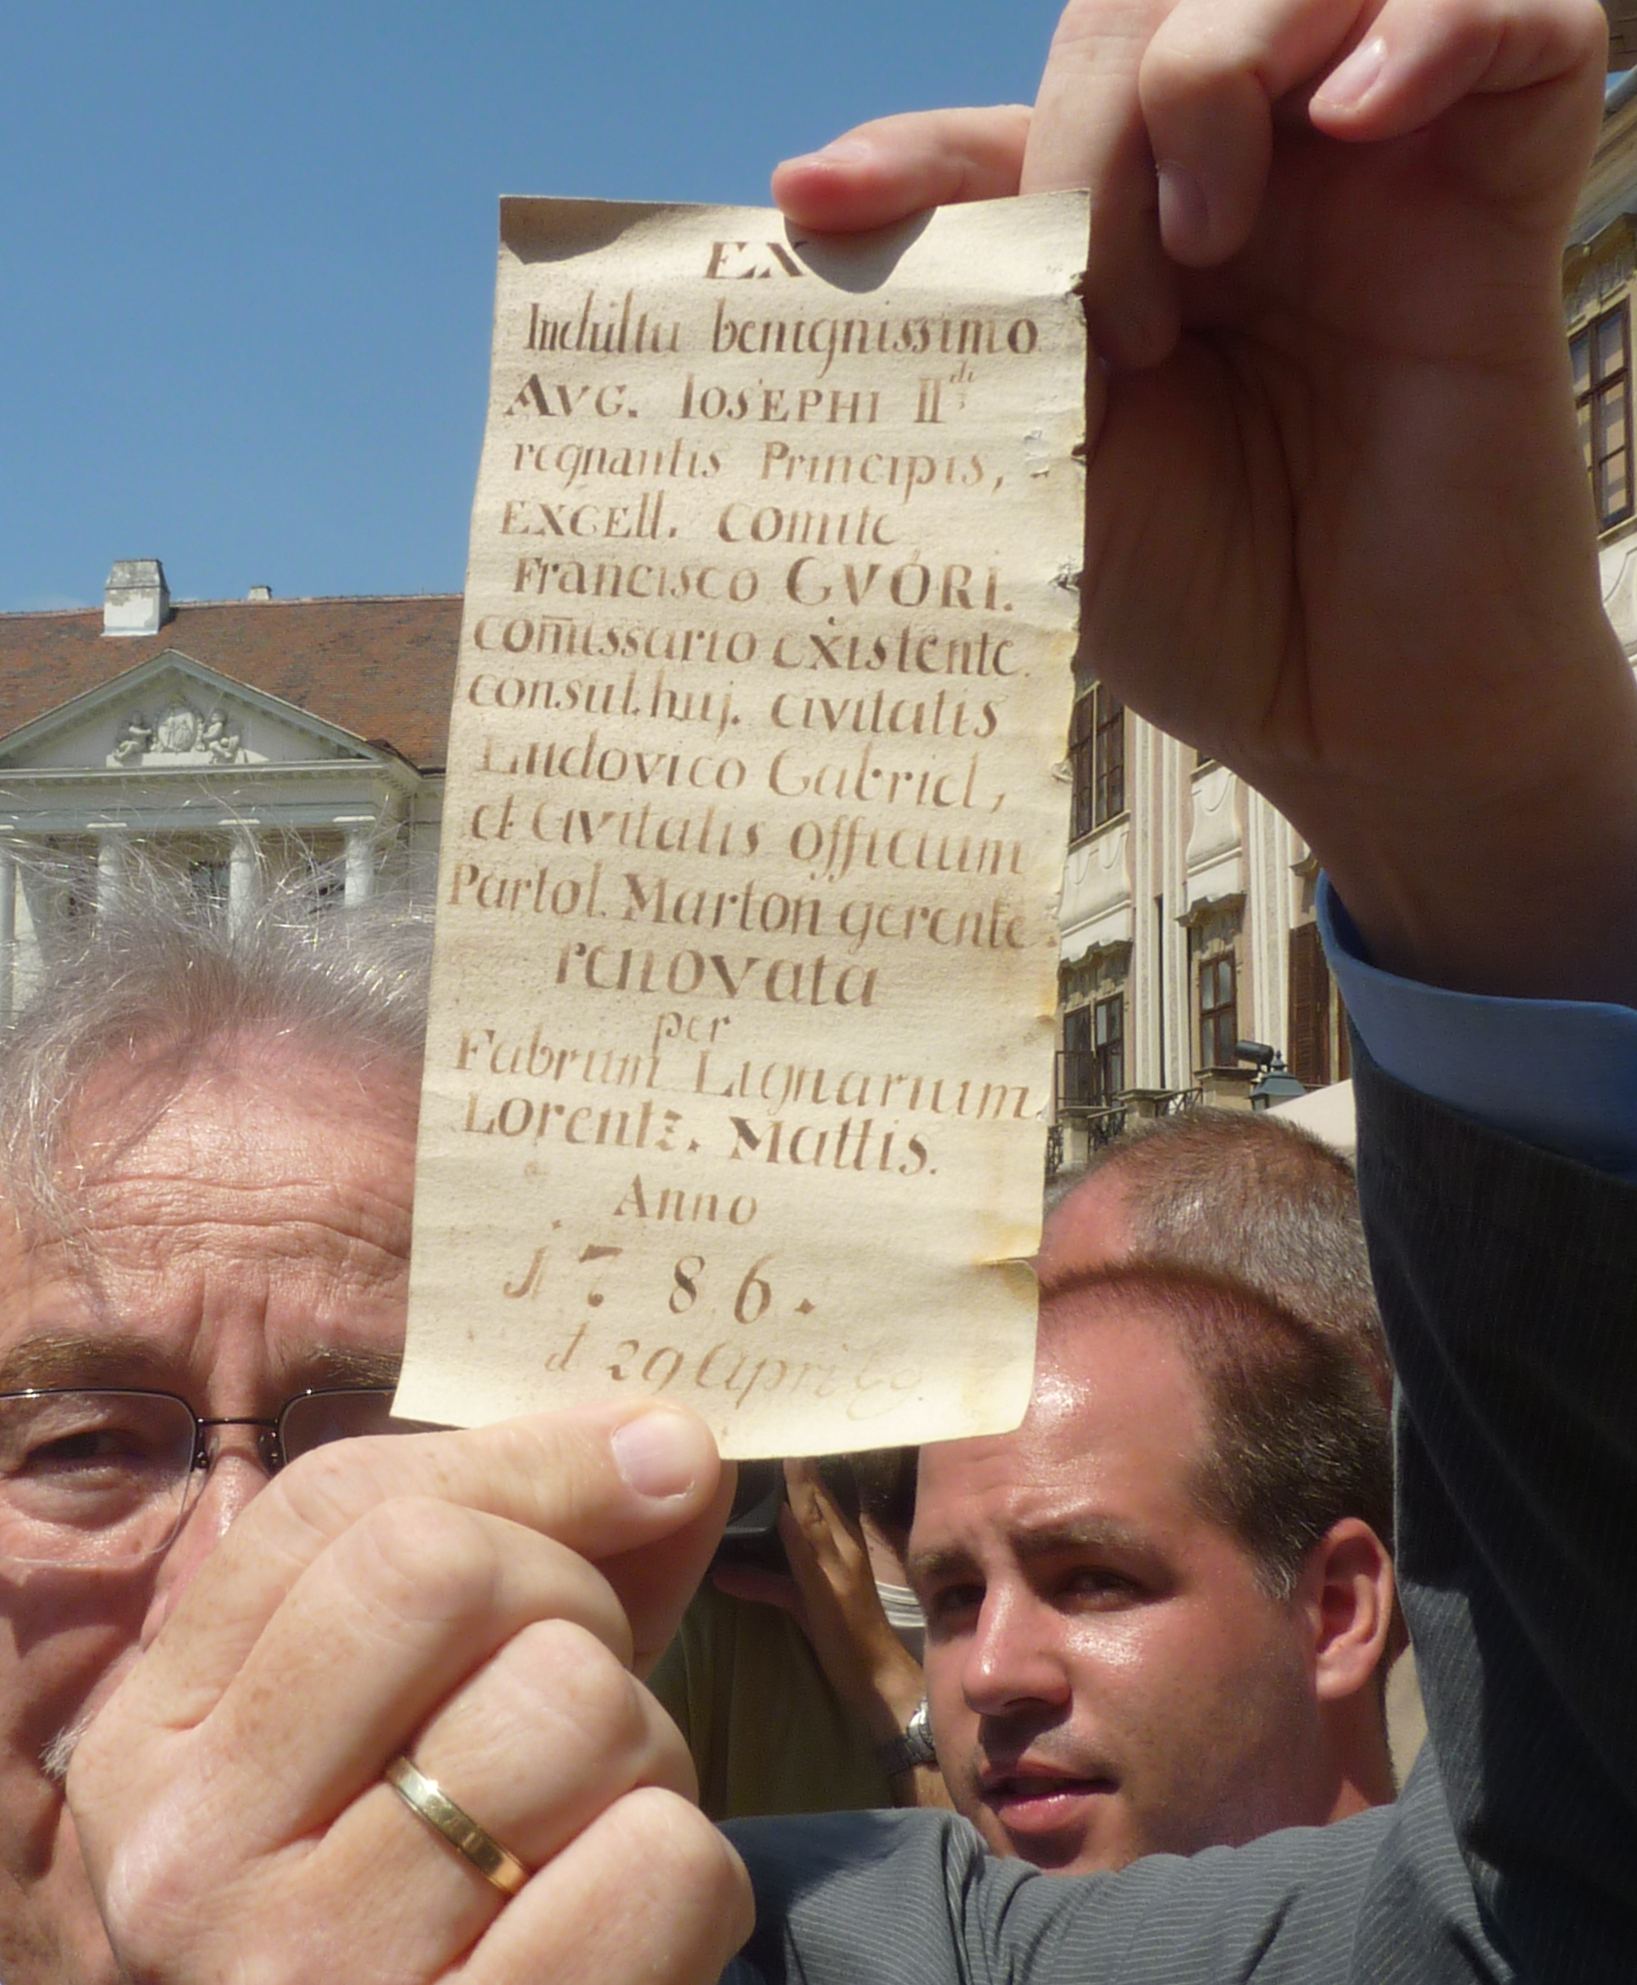 EX
Indultu benignissimo
AVG. IOSEPHI II di
regnantis Principis,
EXCEll. Comite
Francisco GVÓRI.
com̄issario existente.
consul. huj. civitatis
Ludovico Gabriel,
et Civitatis Officium
Partol. Marton gerente.
renovata
per
Fabrum Lignarium.
Lorentz. Mattis.
Anno
j786.
d 29 Aprilis